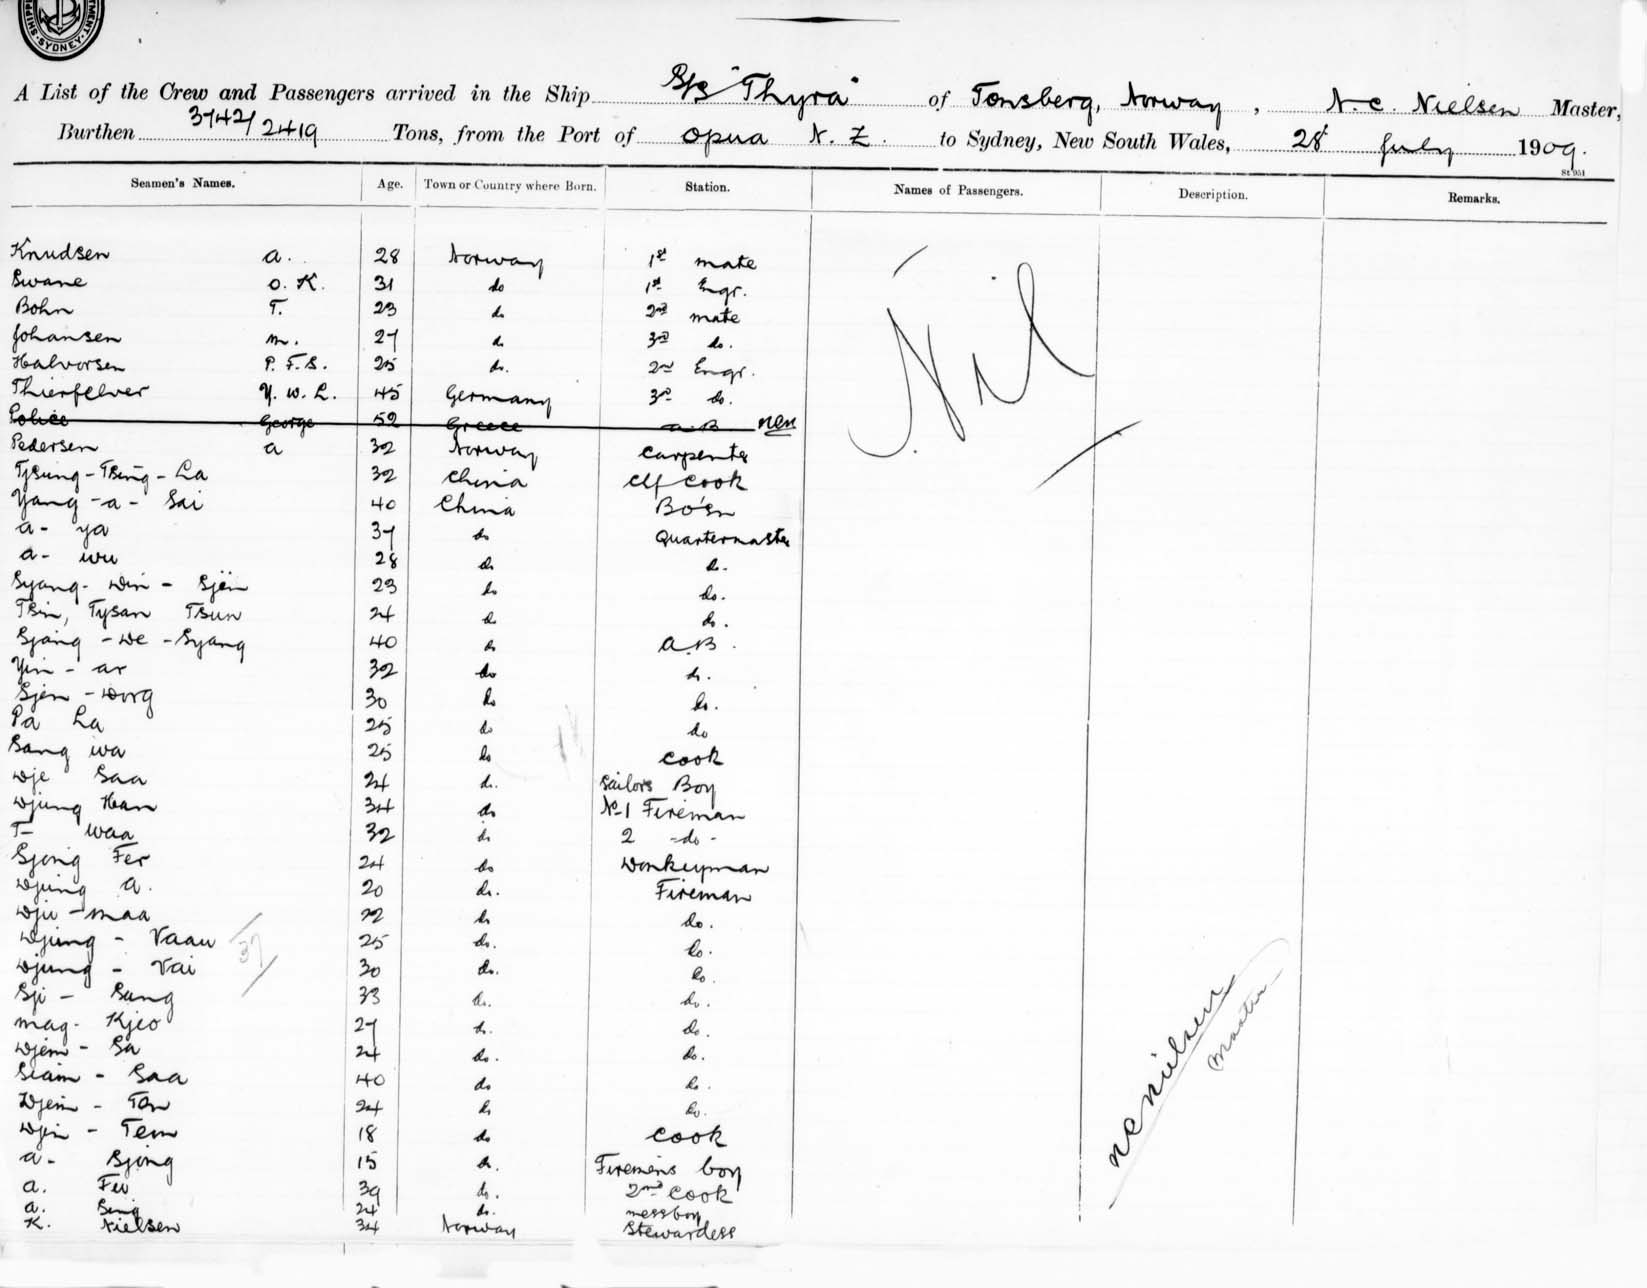 SHIPPING SYDNEY
A List of the Crew and Passengers arrived in the Ship S/S "Thyra" of Tonsberg, Norway, N. C. Nielsen Master,
Burthen 3742/2419 Tons, from the Port of Opua N. Z. to Sydney, New South Wales, 28 July 1909.
St 951
Seamen's Names. Age. Town or Country where Born. Station. Names of Passengers. Description. Remarks.
Knudsen A. 28 Norway 1st mate
Swane O. K. 31 do 1st Engr.
Bohn T. 23 do 2nd mate
Johansen M. 27 do 3rd do.
Halvorsen P. F. S. 25 do. 2nd Engr.
Thierfelver Y. W. L. 45 Germany 3rd do.
Police George 52 Greece A.B
Pedersen A 32 Norway Carpenter
Tysung-Tsing-La 32 China Clf Cook
Yang-a-Sai 40 China Bo'sn
A- ya 37 do Quartermaster
A- wu 28 do do.
Syang-Win-Sjën 23 do do.
Tsin, Tysan Tsun 24 do do.
Sjang-We-Syang 40 do A.B.
Yin-ar 32 do do.
Sjen-Dorg 30 do do.
Pa La 25 do do
Sang wa 25 do Cook
Dje Saa 24 do. Sailors Boy
Djung Han 34 do No 1 Fireman
T- waa 32 do 2 -do-
Sjong Fer 24 do Donkeyman
Djung A. 20 do. Fireman
Dju-maa 22 do do.
Djung-Vaau 25 do. do.
Djung-Vai 30 do. do.
37
Sji-Sang 33 do. do.
Mag-Kjeo 27 do. do.
Djem-Sa 24 do. do.
Siam-Saa 40 do do.
Djem-Ton 24 do do.
Djin-Tem 18 do Cook
A- Sjong 15 do. Firemens boy
A. Fu 39 do. 2nd Cook
A. Sing 24 do. messboy
K. Nielsen 34 Norway Stewardess
Nil
N C Nielsen
Master